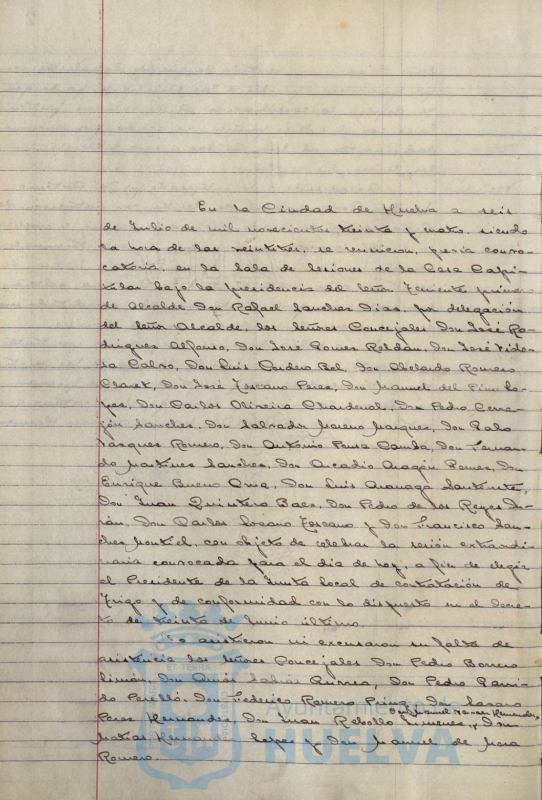 En la Ciudad de Huelva a seis
de Julio de mil novecientos treinta y cuatro, siendo
la hora de las veintitres, se reunieron, previa convo-
catoria, en la Sala de Sesiones de la Casa Capi-
tular bajo la presidencia del Señor Teniente primero
de Alcalde Don Rafael Sanchez Diaz, por delegación
del Señor Alcalde, los Señores Concejales Don José Ro-
driguez Alfonso, Don José Gomez Roldán, Don José Vides
Calvo, Don Luis Cordero Bel, Don Abelardo Romero
Claret, Don José Toscano Perez, Don Manuel del Pino Lo-
pez, Don Carlos Oliveira Chardenal, Don Pedro Cerre-
jón Sanchez, Don Salvador Moreno Marquez, Don Pablo
Vazquez Romero, Don Antonio Ponce Camba, Don Fernan-
do Martinez Sanchez, Don Arcadio Aragón Gomez, Don
Enrique Bueno Don Luis
Don Juan Quintero Baez, Don Pedro de los Reyes Du-
rán, Don Carlos Lozano Toscano y Don Francisco San-
chez Montiel, con objeto de celebrar la sesión extraordi-
naria convocada para el día de hoy, a fin de elegir
el Presidente de la Junta local de contratación de
Trigo y de conformidad con lo dispuesto en el Decre-
to de treinta de Junio último.
No asistieron ni excusaron su falta de
asistencia los Señores Concejales Don Pedro Borrero
Limón, Don Amós Sabrás Gurrea, Don Pedro Garri-
do Perelló, Don Federico Romero Don Lazaro
Perez Hernandez, Don Juan Rebollo Jimenez, Don
Matias Hernandez Lopez y Don Manuel de Mora
Romero.
Ayuntamiento de
HUELVA